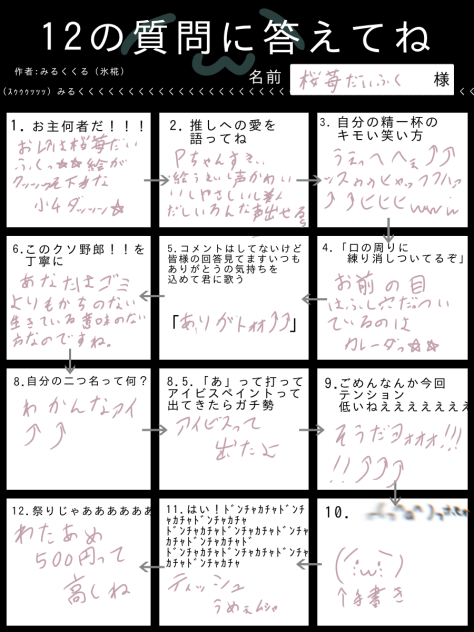 12の質問に答えてね
作者:みるくくる（氷椛）
名前 桜苺だいふく 様
(ｽｩｩｩｯｯｯ) みるくくくくくくくくくくくくくくくくくくくくくくくくくくく
1. お主何者だ！！！
おれは桜苺だい
ふくっ☆☆絵が
クッソッ下手な
小4ダッッッ☆
2. 推しへの愛を
語ってね
Pちゃんすきぃ
絵うといし声かわいい
いしやさしいし
だしいろんな声出せるぅ
3. 自分の精一杯の
キモい笑い方
うぇっへへぇ⤴⤴
ヒヒヒ
4. 「口の周りに
練り消しついてるぞ」
お前の目
はふし穴だつい
ているのは
カレーダっ☆☆
5. コメントはしてないけど
皆様の回答見てますいつも
ありがとうの気持ちを
込めて君に歌う
「ありがトォォ⤴⤴」
6.このクソ野郎！！を
丁寧に
あなたはゴミ
よりもかちのない
生きている意味のない
方なのですね。
8.自分の二つ名って何？
わかんなァイ
⤴⤴
8.5.「あ」って打って
アイビスペイントって
出てきたらガチ勢
アイビスって
出たよ
9.ごめんなんか今回
テンション
低いねえええええええ
そうだヨォォォ!!!
!!⤴⤴⤴
10.
(´･ω･`)
↑手書き
11. はい！ﾄﾞﾝﾁｬｶﾁｬﾄﾞﾝﾁ
ｬｶﾁｬﾄﾞﾝﾁｬｶﾁｬ
ﾄﾞﾝﾁｬｶﾁｬﾄﾞﾝﾁｬｶﾁｬﾄﾞﾝ
ﾁｬｶﾁｬﾄﾞﾝﾁｬｶﾁｬﾄﾞ
ﾄﾞﾝﾁｬｶﾁｬﾄﾞﾝﾁｬｶﾁｬﾄﾞﾝ
ﾁｬｶﾁｬﾄﾞﾝﾁｬｶﾁｬ
ティッシュ
うめぇムシャ
12.祭りじゃああああああ
わたあめ
500円って
高しね